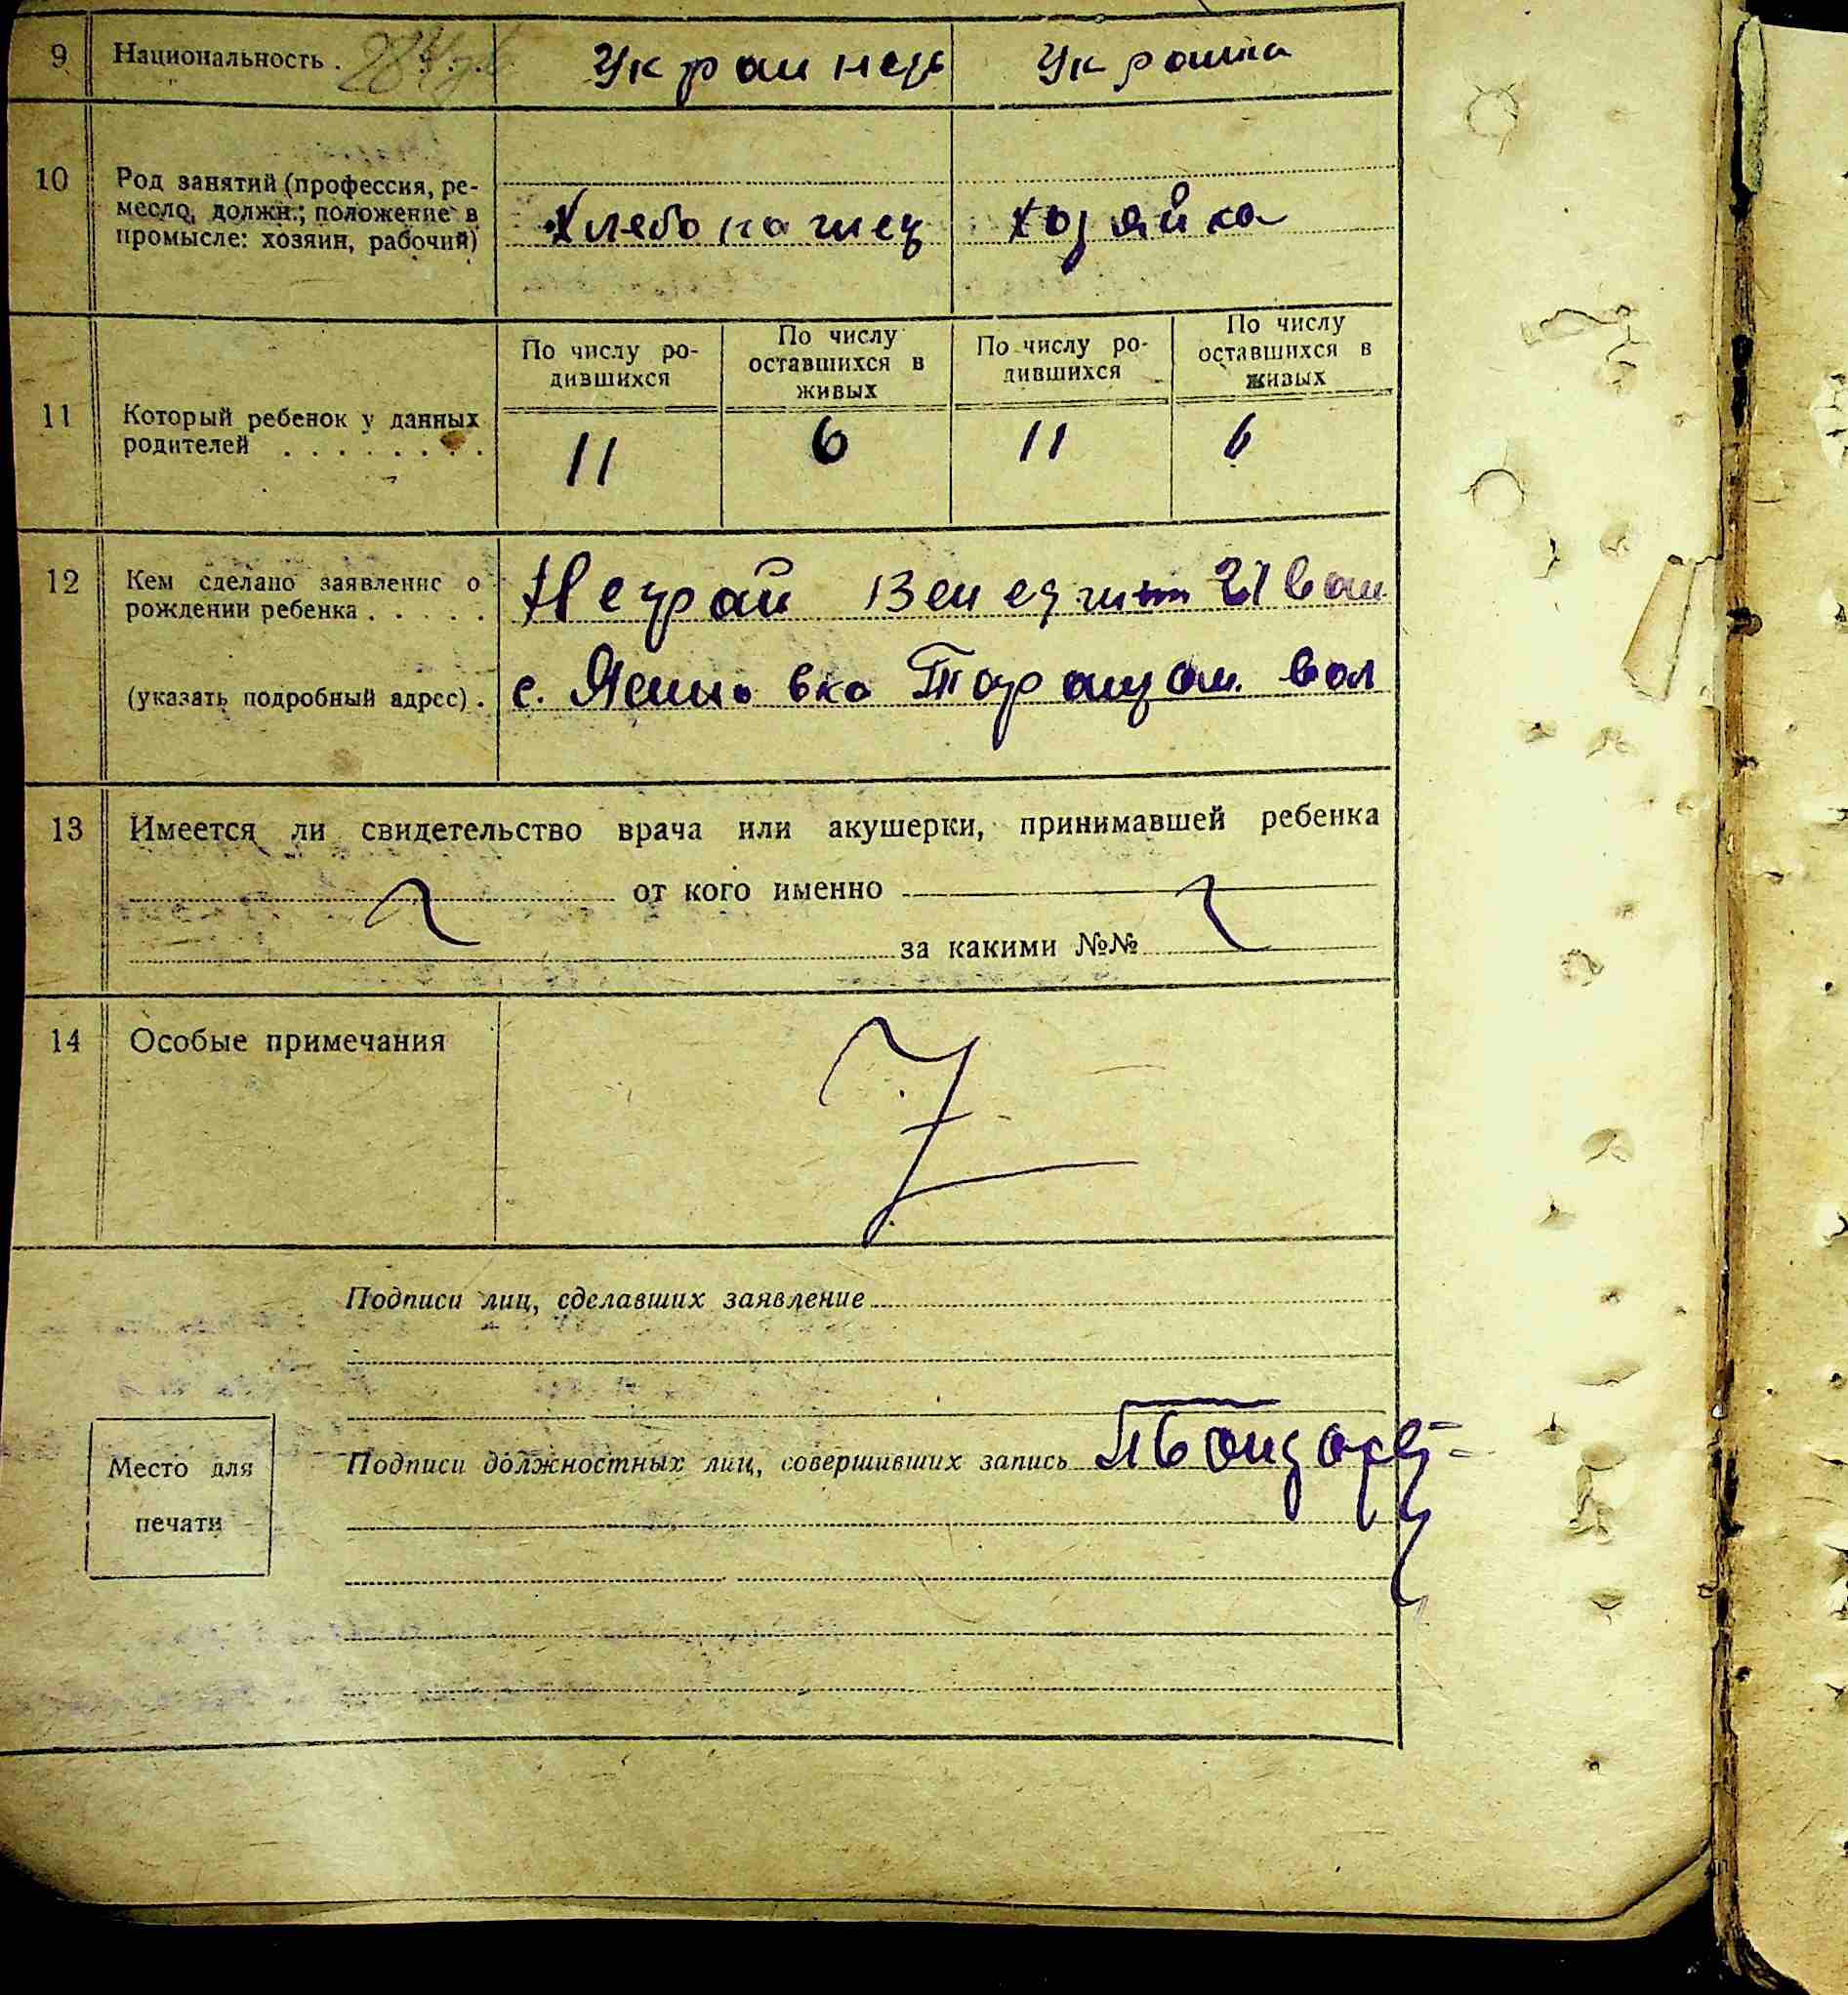 9 Национальность . Украинец Украинка
10 Род занятий (профессия, ре-
месло, должн.; положение в
промысле: хозяин, рабочий)
Хлебопашец хозяйка
По числу ро-
дившихся
По числу
оставшихся в
живых
По числу ро-
дившихся
По числу
оставшихся в
живых
11 Который ребенок у данных
родителей . . . . . . . .
11 6 11 6
12 Кем сделано заявление о
рождении ребенка . . . . .
Неграй Венедикт Иван
(указать подробный адрес) .
с. вка вол
13 Имеется ли свидетельство врача или акушерки, принимавшей ребенка
от кого именно
за какими №№
14 Особые примечания
Подписи лиц, сделавших заявление
Подписи должностных лиц, совершивших запись
Место для
печати